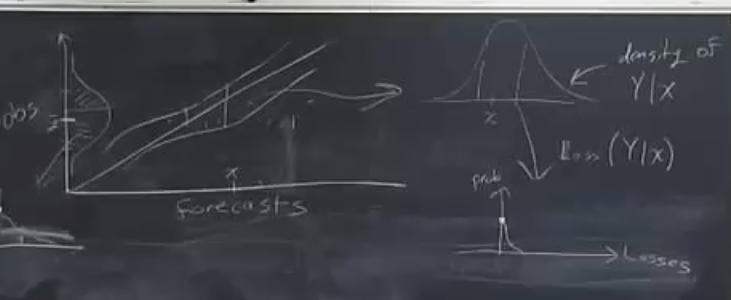 obs
x
forecasts
x
density of
Y|x
Loss (Y|x)
prob
Losses